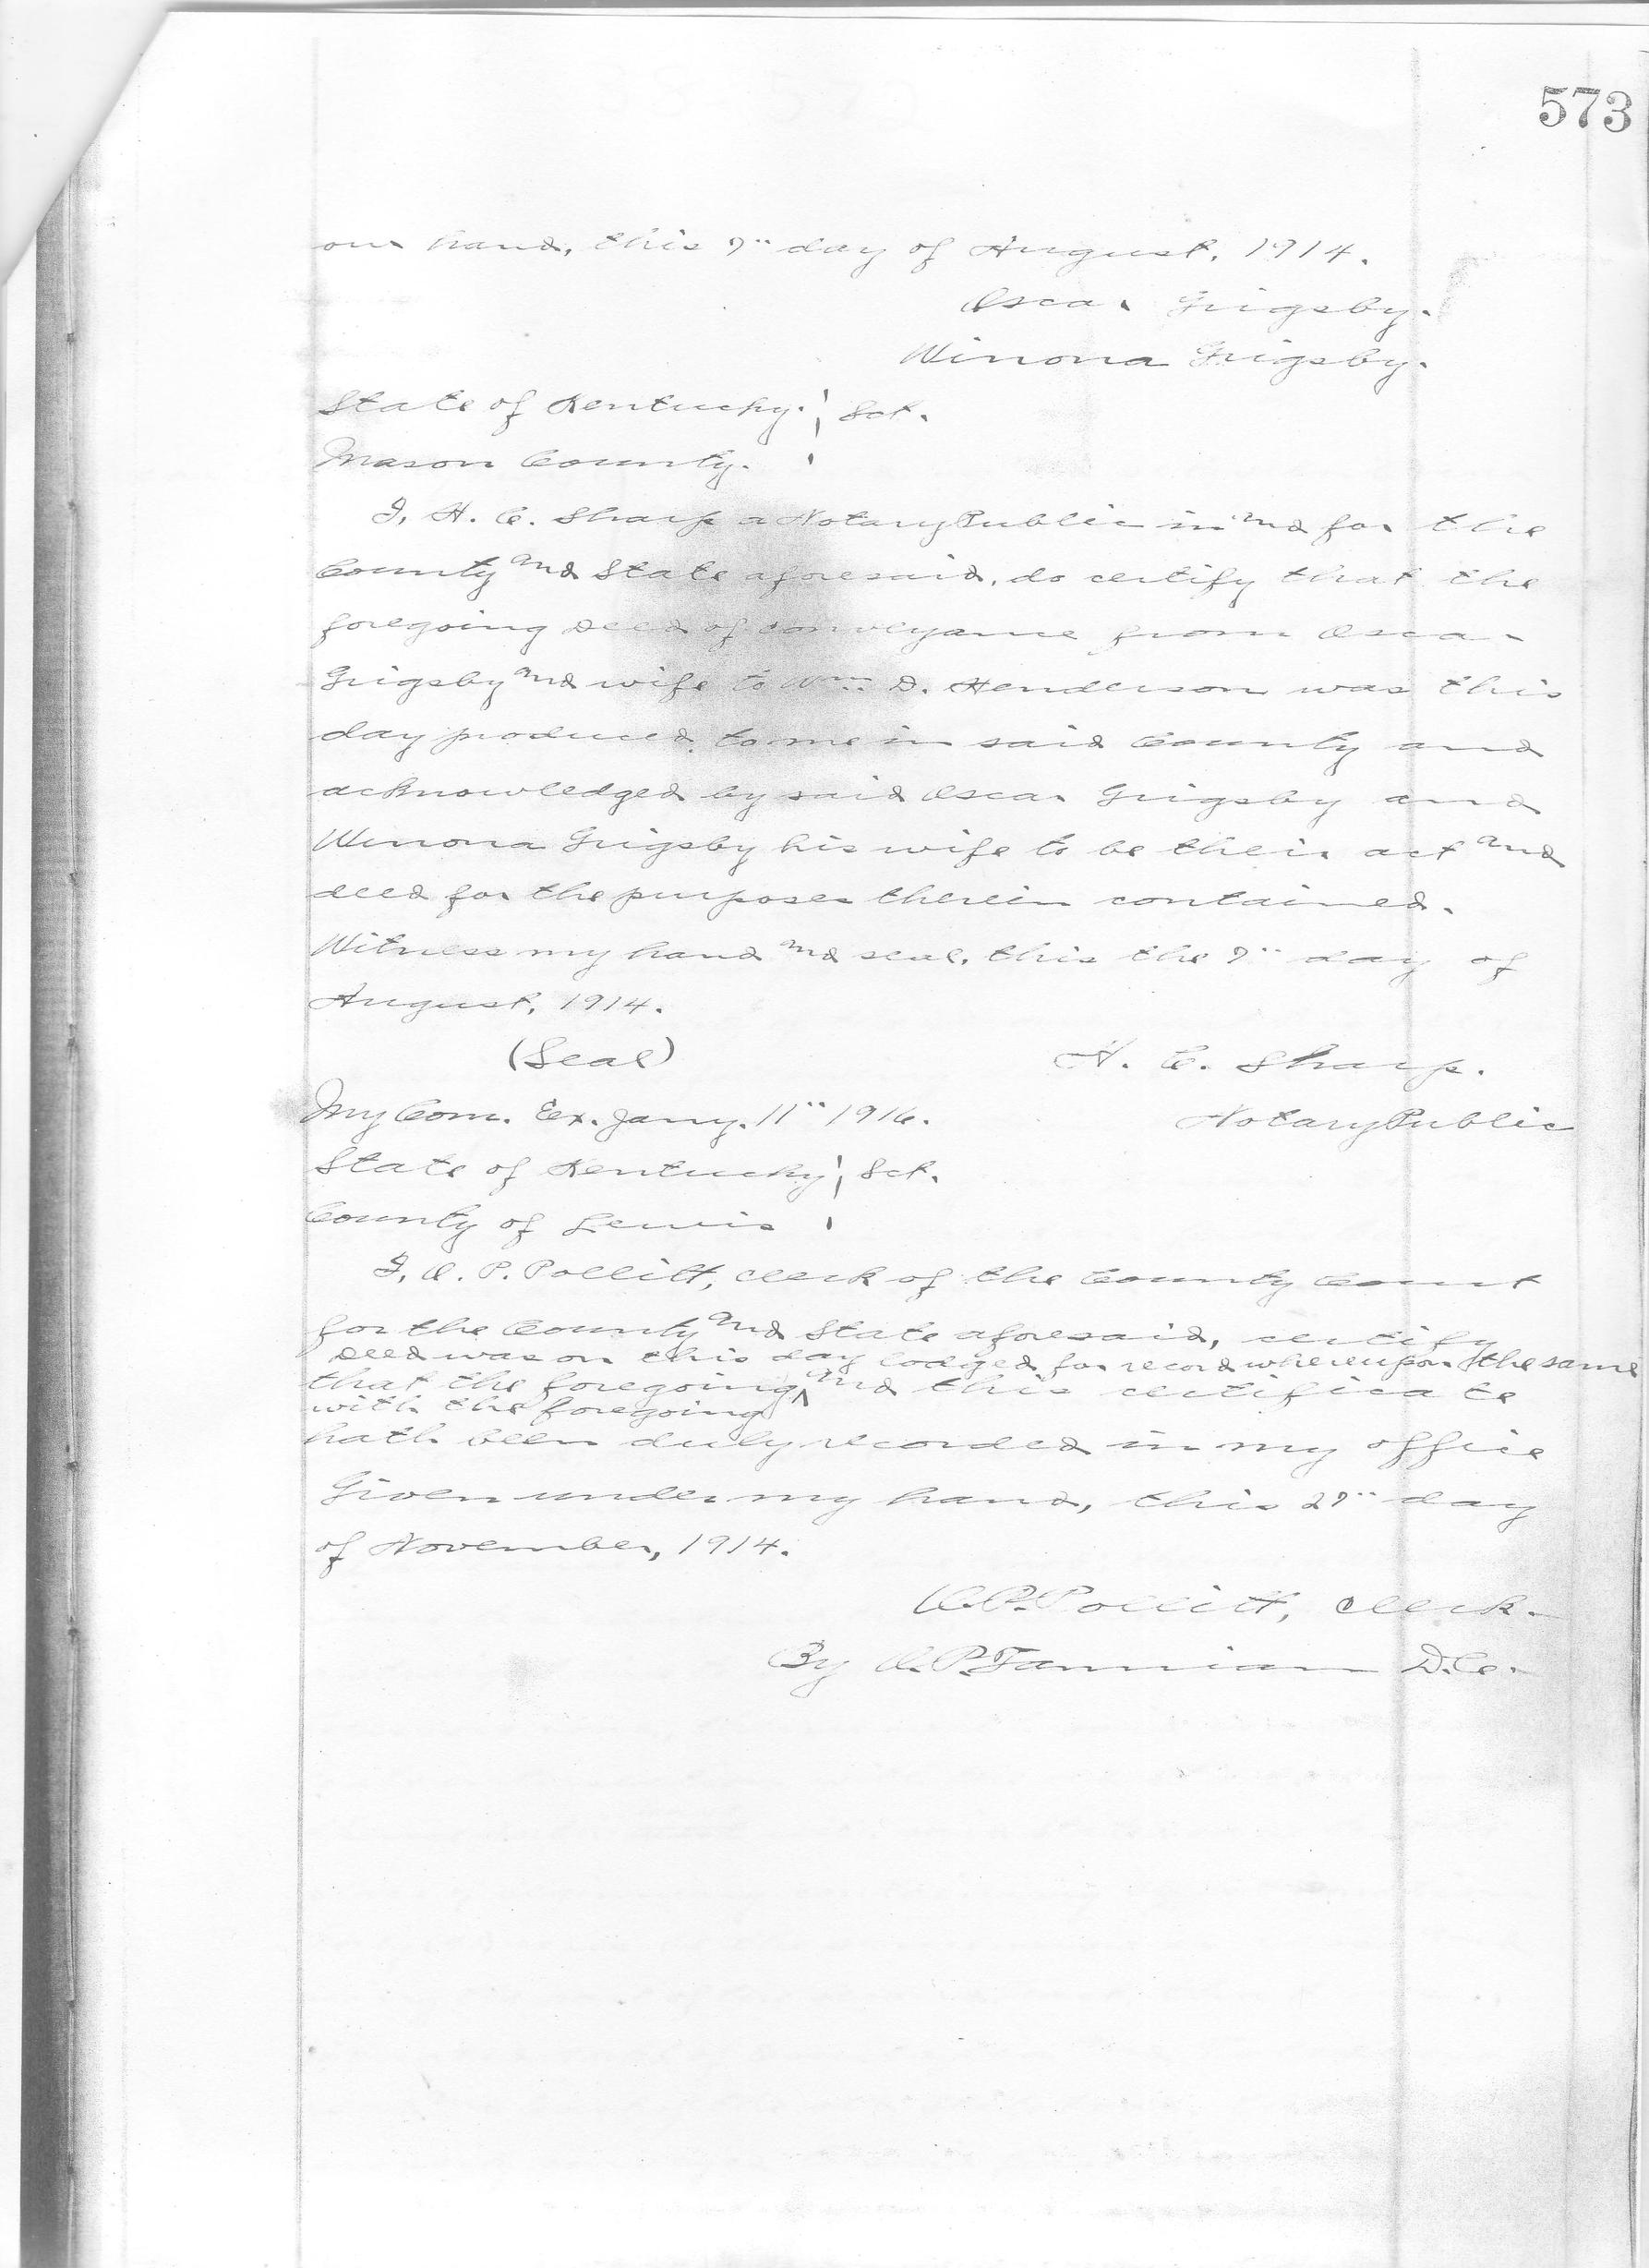 573
our hand, this 7" day of August, 1914.
Oscar Grigsby.
Winona Grigsby.
State of Kentucky. } Sct.
Mason County.
I, H. C. Sharp a Notary Public in and for the
County and State aforesaid, do certify that the
foregoing Deed of conveyance from Oscar
Grigsby and wife to Wm. D. Henderson was this
day produced to me in said County and
acknowledged by said Oscar Grigsby and
Winona Grigsby his wife to be their act and
deed for the purposes therein contained.
Witness my hand and seal, this the 7" day of
August, 1914.
(Seal) H. C. Sharp.
My Com. Ex. Jany. 11" 1916. Notary Public
State of Kentucky } Sct.
County of Lewis
I, O. P. Pollitt, clerk of the County Court
for the County and State aforesaid, certify
Deed was on this day lodged for record whereupon the same
that the foregoing ^ and this certificate
with the foregoing
hath been duly recorded in my office
Given under my hand, this 27" day
of November, 1914.
O. P. Pollitt, Clerk.
By O. P. D. C.